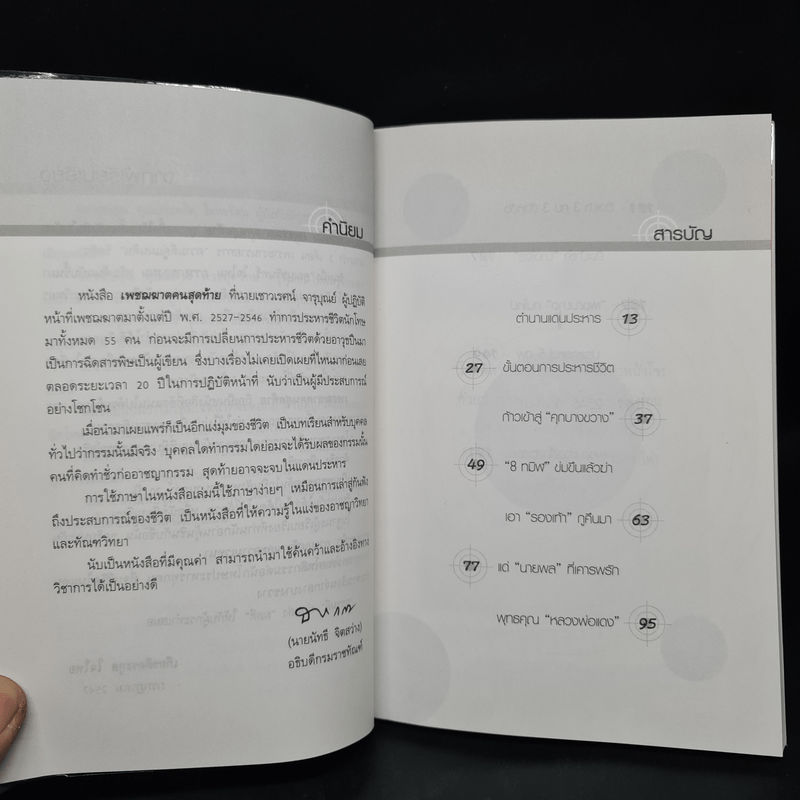 คำนิยม
หนังสือ เพชฌฆาตคนสุดท้าย ที่นายเชาวเรศน์ จารุบุณย์ ผู้ปฏิบัติ
หน้าที่เพชฌฆาตมาตั้งแต่ปี พ.ศ. 2527-2546 ทำการประหารชีวิตนักโทษ
มาทั้งหมด 55 คน ก่อนจะมีการเปลี่ยนการประหารชีวิตด้วยอาวุธปืนมา
เป็นการฉีดสารพิษเป็นผู้เขียน ซึ่งบางเรื่องไม่เคยเปิดเผยที่ไหนมาก่อนเลย
ตลอดระยะเวลา 20 ปีในการปฏิบัติหน้าที่ นับว่าเป็นผู้มีประสบการณ์
อย่างโชกโชน
เมื่อนำมาเผยแพร่ก็เป็นอีกแง่มุมของชีวิต เป็นบทเรียนสำหรับบุคคล
ทั่วไปว่ากรรมนั้นมีจริง บุคคลใดทำกรรมใดย่อมจะได้รับผลของกรรมนั้น
คนที่คิดทำชั่วก่ออาชญากรรม สุดท้ายอาจจะจบในแดนประหาร
การใช้ภาษาในหนังสือเล่มนี้ใช้ภาษาง่ายๆ เหมือนการเล่าสู่กันฟัง
ถึงประสบการณ์ของชีวิต เป็นหนังสือที่ให้ความรู้ในแง่ของอาชญาวิทยา
และทัณฑวิทยา
นับเป็นหนังสือที่มีคุณค่า สามารถนำมาใช้ค้นคว้าและอ้างอิงทาง
วิชาการได้เป็นอย่างดี
(นายนัทธี จิตสว่าง)
อธิบดีกรมราชทัณฑ์
สารบัญ
ตำนานแดนประหาร 13
27 ขั้นตอนการประหารชีวิต
ก้าวเข้าสู่ "คุกบางขวาง" 37
49 "8 ทมิฬ" ข่มขืนแล้วฆ่า
เอา "รองเท้า" กูคืนมา 63
77 แด่ "นายพล" ที่เคารพรัก
พุทธคุณ "หลวงพ่อแดง" 95